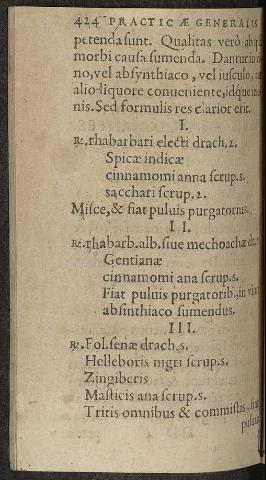 424 PRACTICÆ GENERALIS
petenda sunt. Qualitas verò ab ip
morbi causa sumenda. Danturin
no, vel absynthiaco, vel iusculo,
alio liquore conueniente, idque
nis. Sed formulis res clarior erit.
I.
℞. rhabarbari electi drach. 2.
Spicæ indicæ
cinnamomi anna scrup. s.
sacchari scrup. 2.
Misce, & fiat puluis purgatorius.
II.
℞. rhabarb. alb. siue mechoachæ
Gentianæ
cinnamomi ana scrup. s.
Fiat puluis purgatorib., in vino
absinthiaco sumendus.
III.
℞. Fol. senæ drach. s.
Hellebori nigri scrup. s.
Zingiberis
Masticis ana scrup. s.
Tritis omnibus & commistis, fiat
puluis